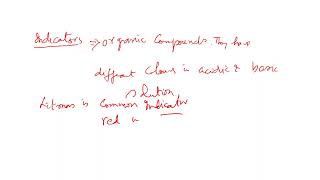 Indicators → organic compounds. They have
different colours in acidic & basic
solution
Litmus is common Indicator
red